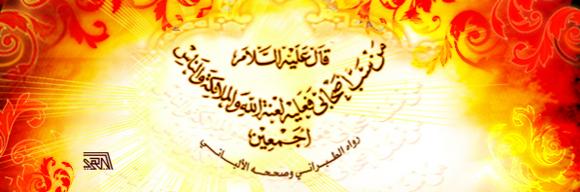 قال عليه السلام
من سب أصحابي فعليه لعنة الله والملائكة والناس
اجمعين
رواه الطبراني وصححه الألباني